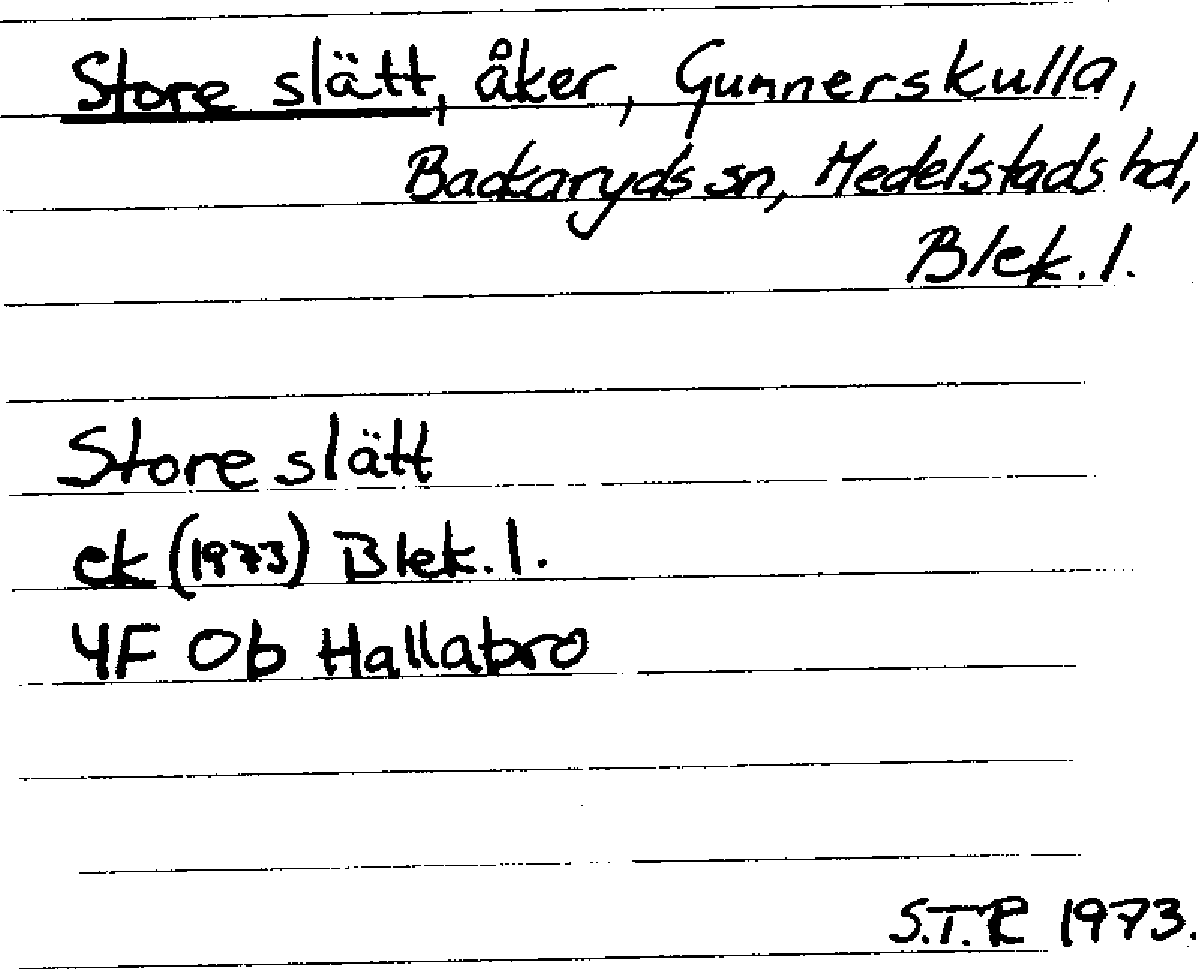 Store slätt, åker, Gunnerskulla,
Backaryds sn, Medelstads hd,
Blek. l.
Store slätt
ek (1973) Blek. l.
4F Ob Hallabro
S.T.R 1973.